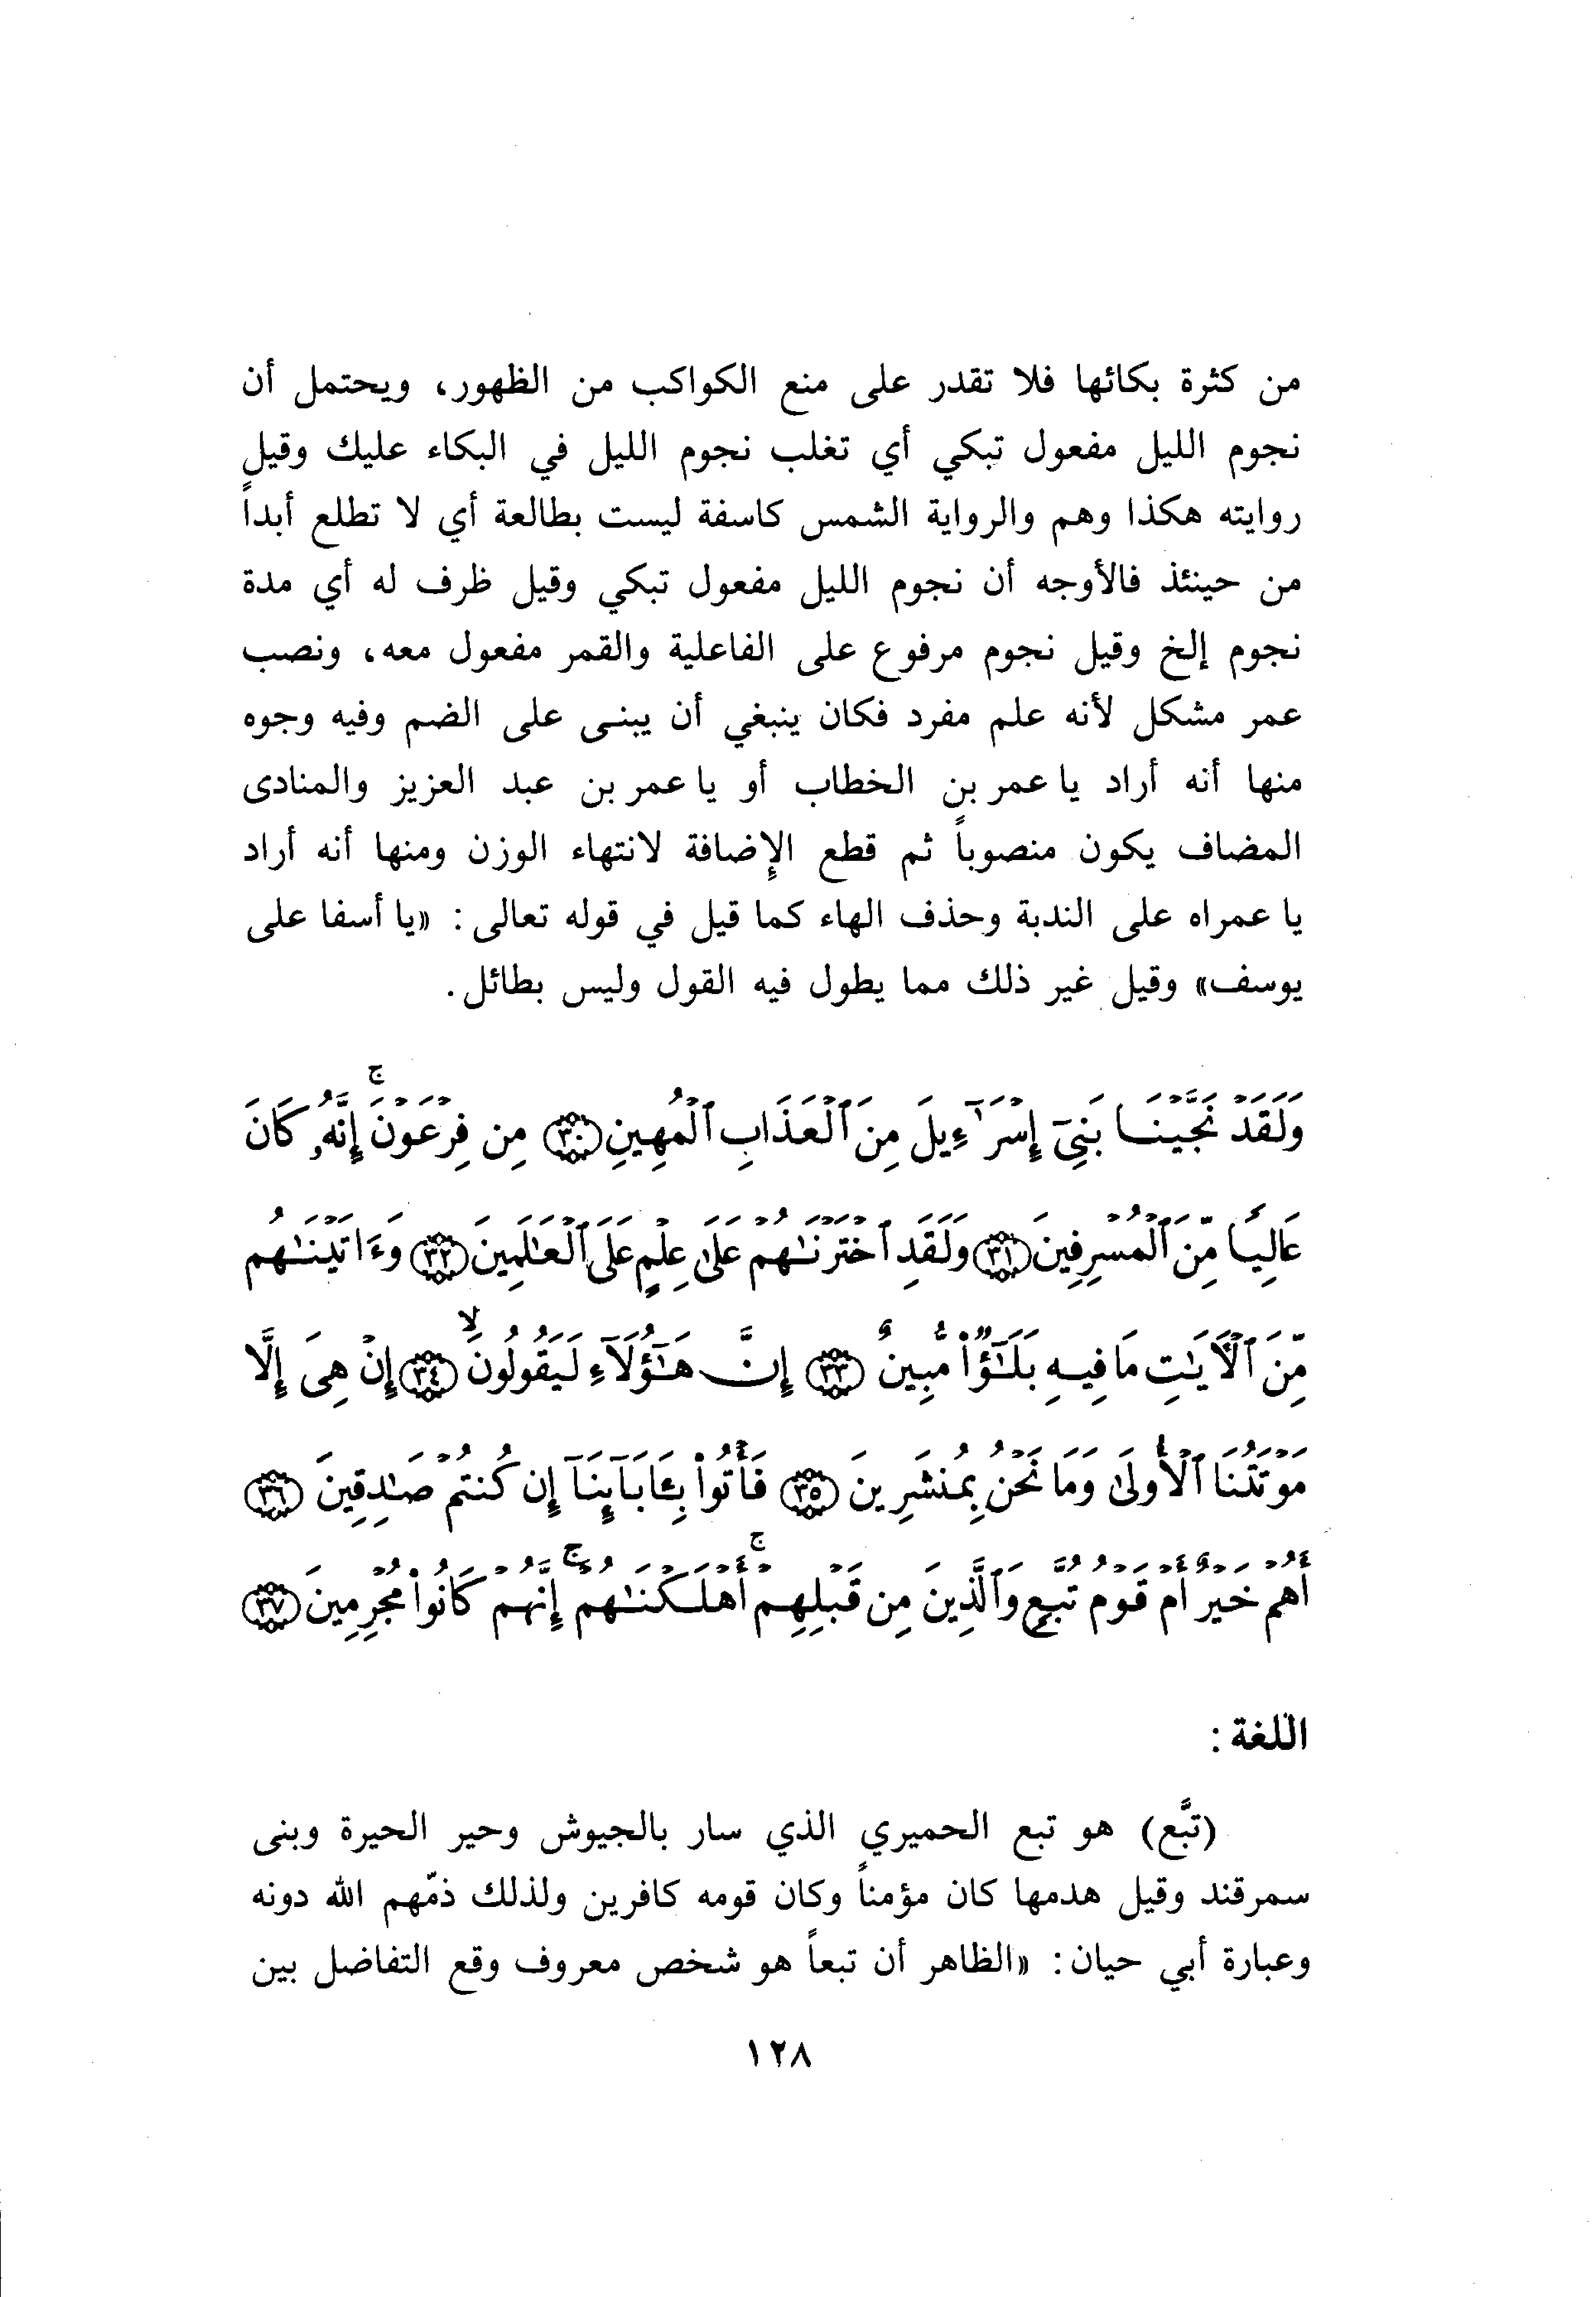 من كثرة بكائها فلا تقدر على منع الكواكب من الظهور، ويحتمل أن
نجوم الليل مفعول تبكي أي تغلب نجوم الليل في البكاء عليك وقيل
روايته هكذا وهم والرواية الشمس كاسفة ليست بطالعة أي لا تطلع أبداً
من حينئذ فالأوجه أن نجوم الليل مفعول تبكي وقيل ظرف له أي مدة
نجوم إلخ وقيل نجوم مرفوع على الفاعلية والقمر مفعول معه، ونصب
عمر مشكل لأنه علم مفرد فكان ينبغي أن يبنى على الضم وفيه وجوه
منها أنه أراد يا عمر بن الخطاب أو يا عمر بن عبد العزيز والمنادى
المضاف يكون منصوباً ثم قطع الإضافة لانتهاء الوزن ومنها أنه أراد
يا عمراه على الندبة وحذف الهاء كما قيل في قوله تعالى: «يا أسفا على
يوسف» وقيل غير ذلك مما يطول فيه القول وليس بطائل.
وَلَقَدْ نَجَّيْنَا بَنِىٓ إِسْرَٰٓءِيلَ مِنَ ٱلْعَذَابِ ٱلْمُهِينِ ﴿٣٠﴾ مِن فِرْعَوْنَ ۚ إِنَّهُۥ كَانَ
عَالِيًا مِّنَ ٱلْمُسْرِفِينَ ﴿٣١﴾ وَلَقَدِ ٱخْتَرْنَٰهُمْ عَلَىٰ عِلْمٍ عَلَى ٱلْعَٰلَمِينَ ﴿٣٢﴾ وَءَاتَيْنَٰهُم
مِّنَ ٱلْـَٔايَٰتِ مَا فِيهِ بَلَٰٓؤٌا۟ مُّبِينٌ ﴿٣٣﴾ إِنَّ هَٰٓؤُلَآءِ لَيَقُولُونَ ۙ ﴿٣٤﴾ إِنْ هِىَ إِلَّا
مَوْتَتُنَا ٱلْأُولَىٰ وَمَا نَحْنُ بِمُنشَرِينَ ﴿٣٥﴾ فَأْتُوا۟ بِـَٔابَآئِنَآ إِن كُنتُمْ صَٰدِقِينَ ﴿٣٦﴾
أَهُمْ خَيْرٌ أَمْ قَوْمُ تُبَّعٍ وَٱلَّذِينَ مِن قَبْلِهِمْ ۚ أَهْلَكْنَٰهُمْ ۚ إِنَّهُمْ كَانُوا۟ مُجْرِمِينَ ﴿٣٧﴾
اللغة:
(تبَّع) هو تبع الحميري الذي سار بالجيوش وحير الحيرة وبنى
سمرقند وقيل هدمها كان مؤمناً وكان قومه كافرين ولذلك ذمّهم الله دونه
وعبارة أبي حيان: «الظاهر أن تبعاً هو شخص معروف وقع التفاضل بين
١٢٨